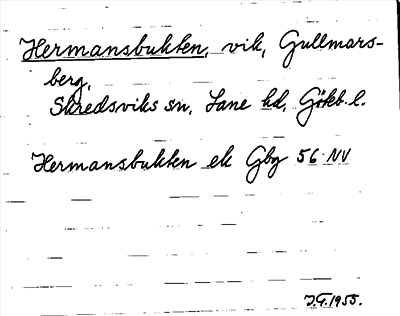 Hermansbukten, vik, Gullmars-
berg,
Skredsviks sn, Lane hd, Göteb. l.
Hermansbukten ek Gbg 56 NV
J.G. 1955.